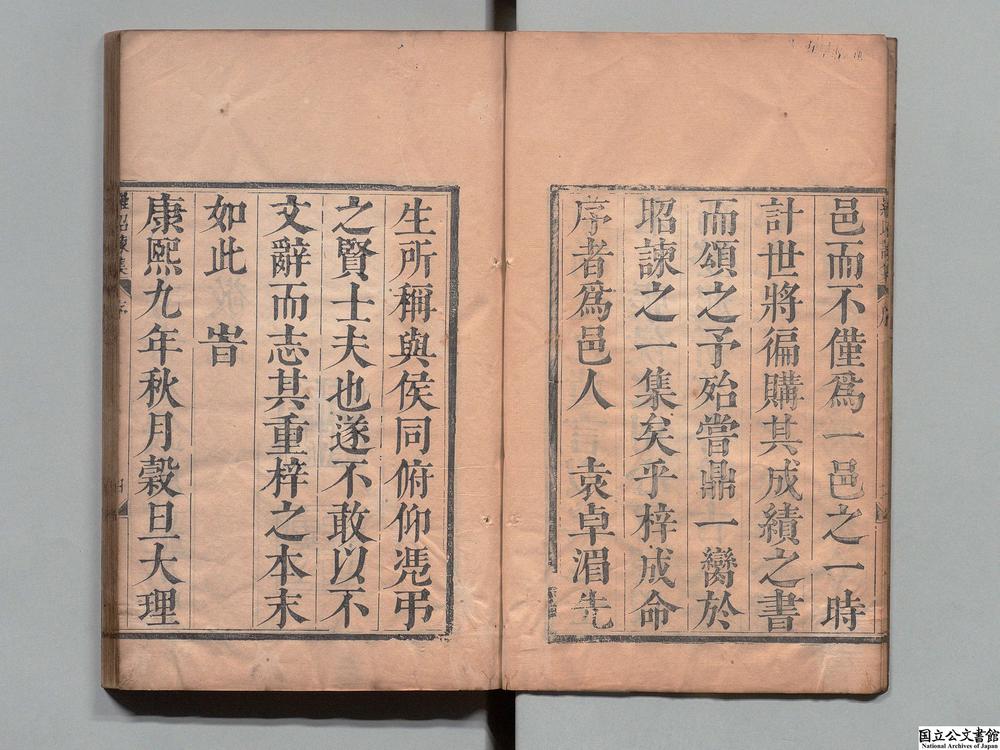 邑而不僅爲一邑之一時
計世將徧購其成績之書
而頌之予殆嘗鼎一臠於
昭諫之一集矣乎梓成命
序者爲邑人　袁卓湄先
生所稱與侯同俯仰凴弔
之賢士夫也遂不敢以不
文辭而志其重梓之本末
如此　峕
康熙九年秋月穀旦大理
国立公文書館
National Archives of Japan